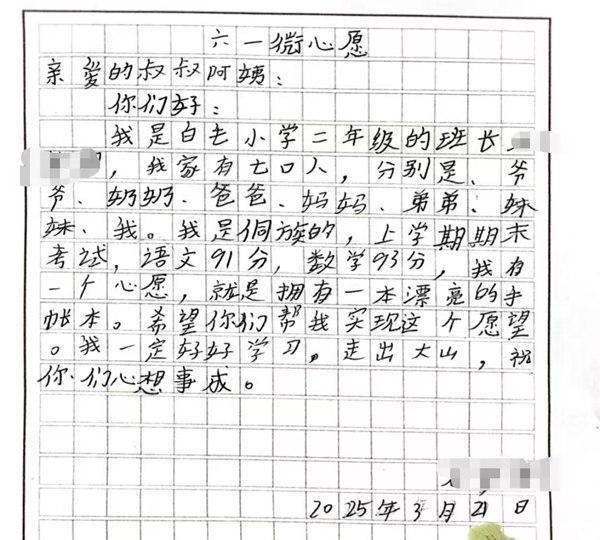 六一微心愿
亲爱的叔叔阿姨：
你们好：
我是白去小学二年级的班长
，我家有七口人，分别是、爷
爷、奶奶、爸爸、妈妈、弟弟、妹
妹、我。我是侗族的，上学期期末
考试，语文91分，数学93分，我有
一个心愿，就是拥有一本漂亮的手
帐本。希望你们帮我实现这个愿望
。我一定好好学习，走出大山，祝
你们心想事成。
2025年3月21日